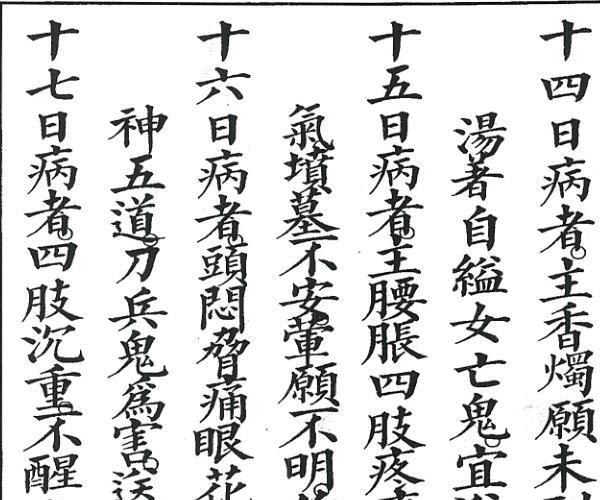 十四日病者。主香燭願未
湯著自縊女亡鬼。宜
十五日病者。主腰脹四肢疼
氣墳墓不安。葷願不明。
十六日病者。頭悶脅痛眼花
神五道。刀兵鬼為害。送
十七日病者。四肢沉重。不醒